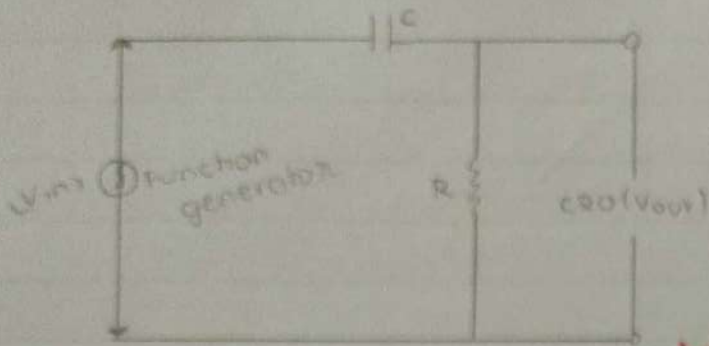 C
(Vin)
function
generator
R
CRO(Vout)